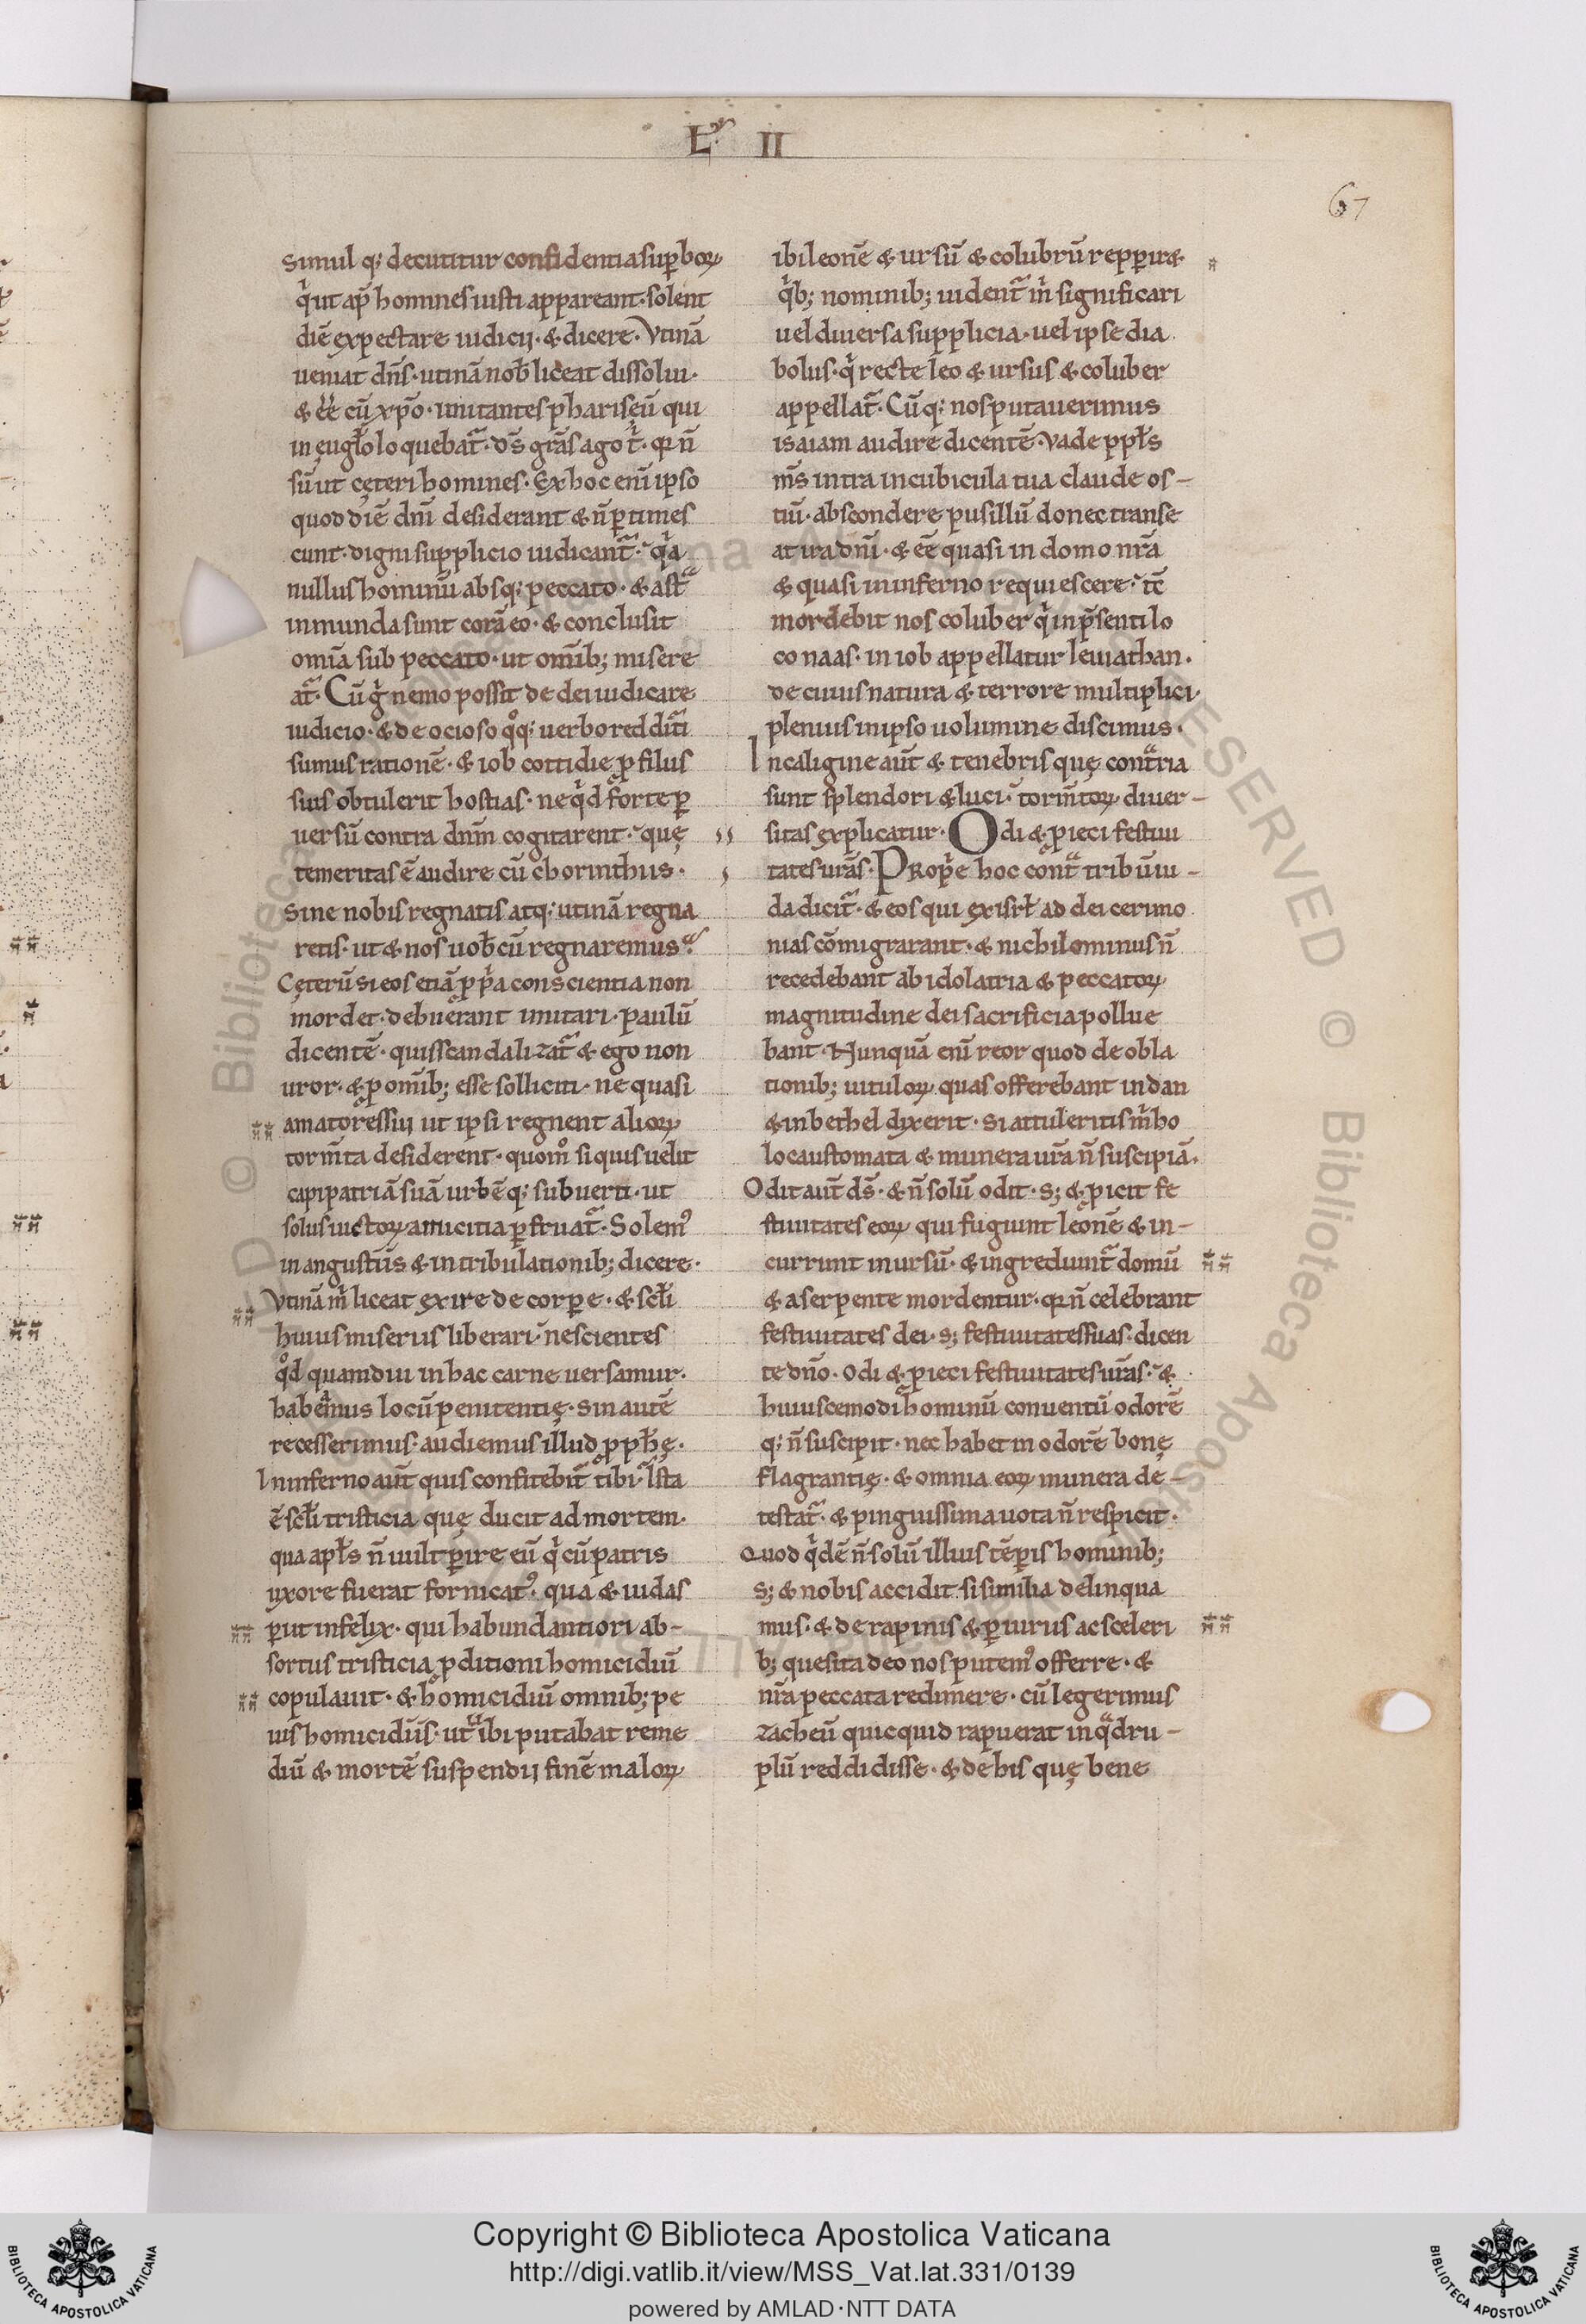 L̄. II
67
simul q; decutitur confidentia sup̱boꝝ
q̇ ut ap̄ homines iusti appareant· solent
diē expectare iudicij· & dicere· Vtinā
ueniat dn̄s· utinā nob̄ liceat dissolui·
& ēē cū xp̄o· imitantes phariseū qui
in euḡlo loquebat̄· d̄s grās ago t̄· qꝛ n̄
sū ut cęteri homines· Ex hoc enī ipso
quod diē dn̄i desiderant & n̄ p̱times
cunt· digni supplicio iudicant̄· q̇a
nullus hominū absq; peccato· & ast̄
inmunda sunt corā eo· & conclusit
omīa sub peccato· ut omīb; misere
at̄· Cū ḡ nemo possit de dei iudicare
iudicio· & de ocioso q̊q; uerbo reddit̄i
sumus rationē· & iob cottidie ꝓ filiis
suis obtulerit hostias· ne q̇d forte p̱
uersū contra dnm̄ cogitarent· quę
temeritas ē audire cū chorinthiis·
Sine nobis regnatis atq; utinā regna
retis· ut & nos uob̄ cū regnaremus·
Cęterū si eos etiā ꝓṗa conscientia non
mordet· debuerant imitari· paulū
dicentē· quis scandalizat̄ & ego non
uror· & ꝓ omīb; esse solliciti· ne quasi
amatores sui ut ipsi regnent alioꝝ
torm̄ta desiderent· quom̊ si quis uelit
capi patriā suā urbēq; subuerti· ut
solus uictoꝝ amicitia p̱fruat̄· Solem᷒
in angustiis & in tribulationib; dicere·
Vtinā ṁ liceat exire de corp̱e· & scl̄i
huius miseriis liberari· nescientes
q̊d quamdiu in hac carne uersamur·
habeamus locū penitentię· Sin autē
recesserimus· audiemus illud ꝓph̄ę·
In inferno aut̄ quis confitebit̄ tibi· Ista
ē scl̄i tristicia quę ducit ad mortem·
qua apl̄s n̄ uult p̱ire eū q̇ cū patris
uxore fuerat fornicat᷒· qua & iudas
p̱iit infelix· qui habundantiori ab-
sortus tristicia ꝓditioni homicidiū
copulauit· & homicidiū omnib; pe
ius homicidiis· ut ubi putabat reme
diū & mortē suspendij finē maloꝝ
ibi leonē & ursū & colubrū rep̱ir&
q̇b; nominib; uident̄ ṁ significari
uel diuersa supplicia· uel ipse dia
bolus· q̇ recte leo & ursus & coluber
appellat̄· Cūq; nos putauerimus
isaiam audire dicentē· Vade ppl̄s
ms̄ intra in cubicula tua claude os-
tiū· abscondere pusillū donec transe
at ira dn̄i· & ēē quasi in domo nrā
& quasi in inferno requiescere· tē
mordebit nos coluber q̇ in p̄senti lo
co naas· in iob appellatur leuiathan·
de cuius natura & terrore multiplici·
plenius in ipso uolumine discimus·
In caligine aut̄ & tenebris quę contria
sunt splendori & luci· torm̄toꝝ diuer-
sitas explicatur· Odi & ꝓieci festiui
tates uras̄· Prop̱e hoc cont̄ tribū iu-
da dicit̄· & eos qui ex isrl̄ ad dei cerimo
nias cōmigrarant· & nichilominus n̄
recedebant ab idolatria & peccatoꝝ
magnitudine dei sacrificia pollue
bant· Nunquā enī reor quod de obla
tionib; uituloꝝ quas offerebant in dan
& in bethel dixerit· Si attuleritis ṁ ho
locaustomata & munera urā n̄ suscipiā·
Odit aut̄ ds̄· & n̄ solū odit· s; & ꝓicit fe
stiuitates eoꝝ qui fugiunt leonē & in-
currunt in ursū· & ingrediunt̄ domū
& a serpente mordentur· qꝛ n̄ celebrant
festiuitates dei· s; festiuitates suas· dicen
te dn̄o· Odi & ꝓieci festiuitates uras̄· &
huiuscemodi hominū conuentū odorē
q; n̄ suscipit· nec habet in odorē bonę
flagrantię· & omnia eoꝝ munera de-
testat̄· & pinguissima uota n̄ respicit·
Quod q̇dē n̄ solū illius tēp̱is hominib;
s; & nobis accidit si similia delinqua
mus· & de rapinis & p̱iuriis ac sceleri
b; quesita deo nos putem᷒ offerre· &
nrā peccata redimere· cū legerimus
zacheū quicquid rapuerat in q̄dru-
plū reddidisse· & de his quę bene
© Biblioteca Apostolica Vaticana ALL RIGHTS RESERVED
Copyright © Biblioteca Apostolica Vaticana
http://digi.vatlib.it/view/MSS_Vat.lat.331/0139
powered by AMLAD·NTT DATA
BIBLIOTECA APOSTOLICA VATICANA
BIBLIOTECA APOSTOLICA VATICANA